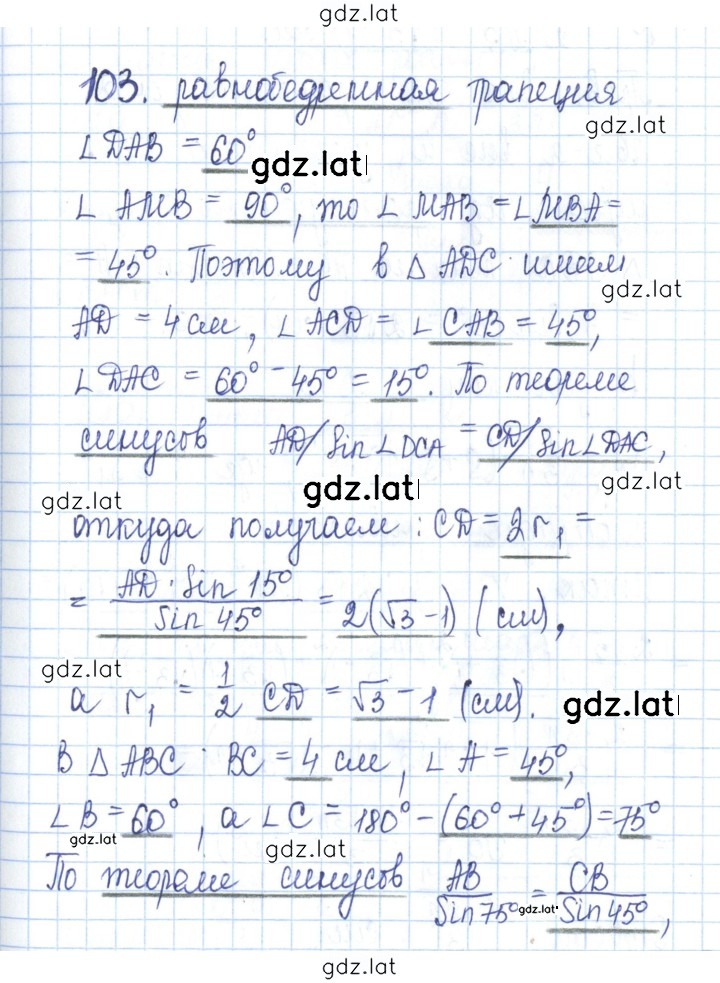 gdz.lat
103. равнобедренная трапеция
gdz.lat
∠DAB = 60°
gdz.lat
∠ AMB = 90°, то ∠ MAB = ∠MBA =
= 45°. Поэтому в △ ADC имеем
gdz.lat
AD = 4 см, ∠ ACD = ∠ CAB = 45°,
∠ DAC = 60° - 45° = 15°. По теореме
синусов AD/Sin ∠DCA = CD/Sin∠DAC,
gdz.lat
gdz.lat
gdz.lat
откуда получаем: CD = 2r₁ =
= AD · Sin 15° / Sin 45° = 2(√3 - 1) (см),
gdz.lat
а r₁ = 1/2 CD = √3 - 1 (см).
gdz.lat
В △ ABC BC = 4 см, ∠ A = 45°,
∠ B = 60°, а ∠ C = 180° - (60° + 45°) = 75°
gdz.lat
gdz.lat
По теореме синусов AB/Sin 75° = CB/Sin 45°,
gdz.lat
gdz.lat